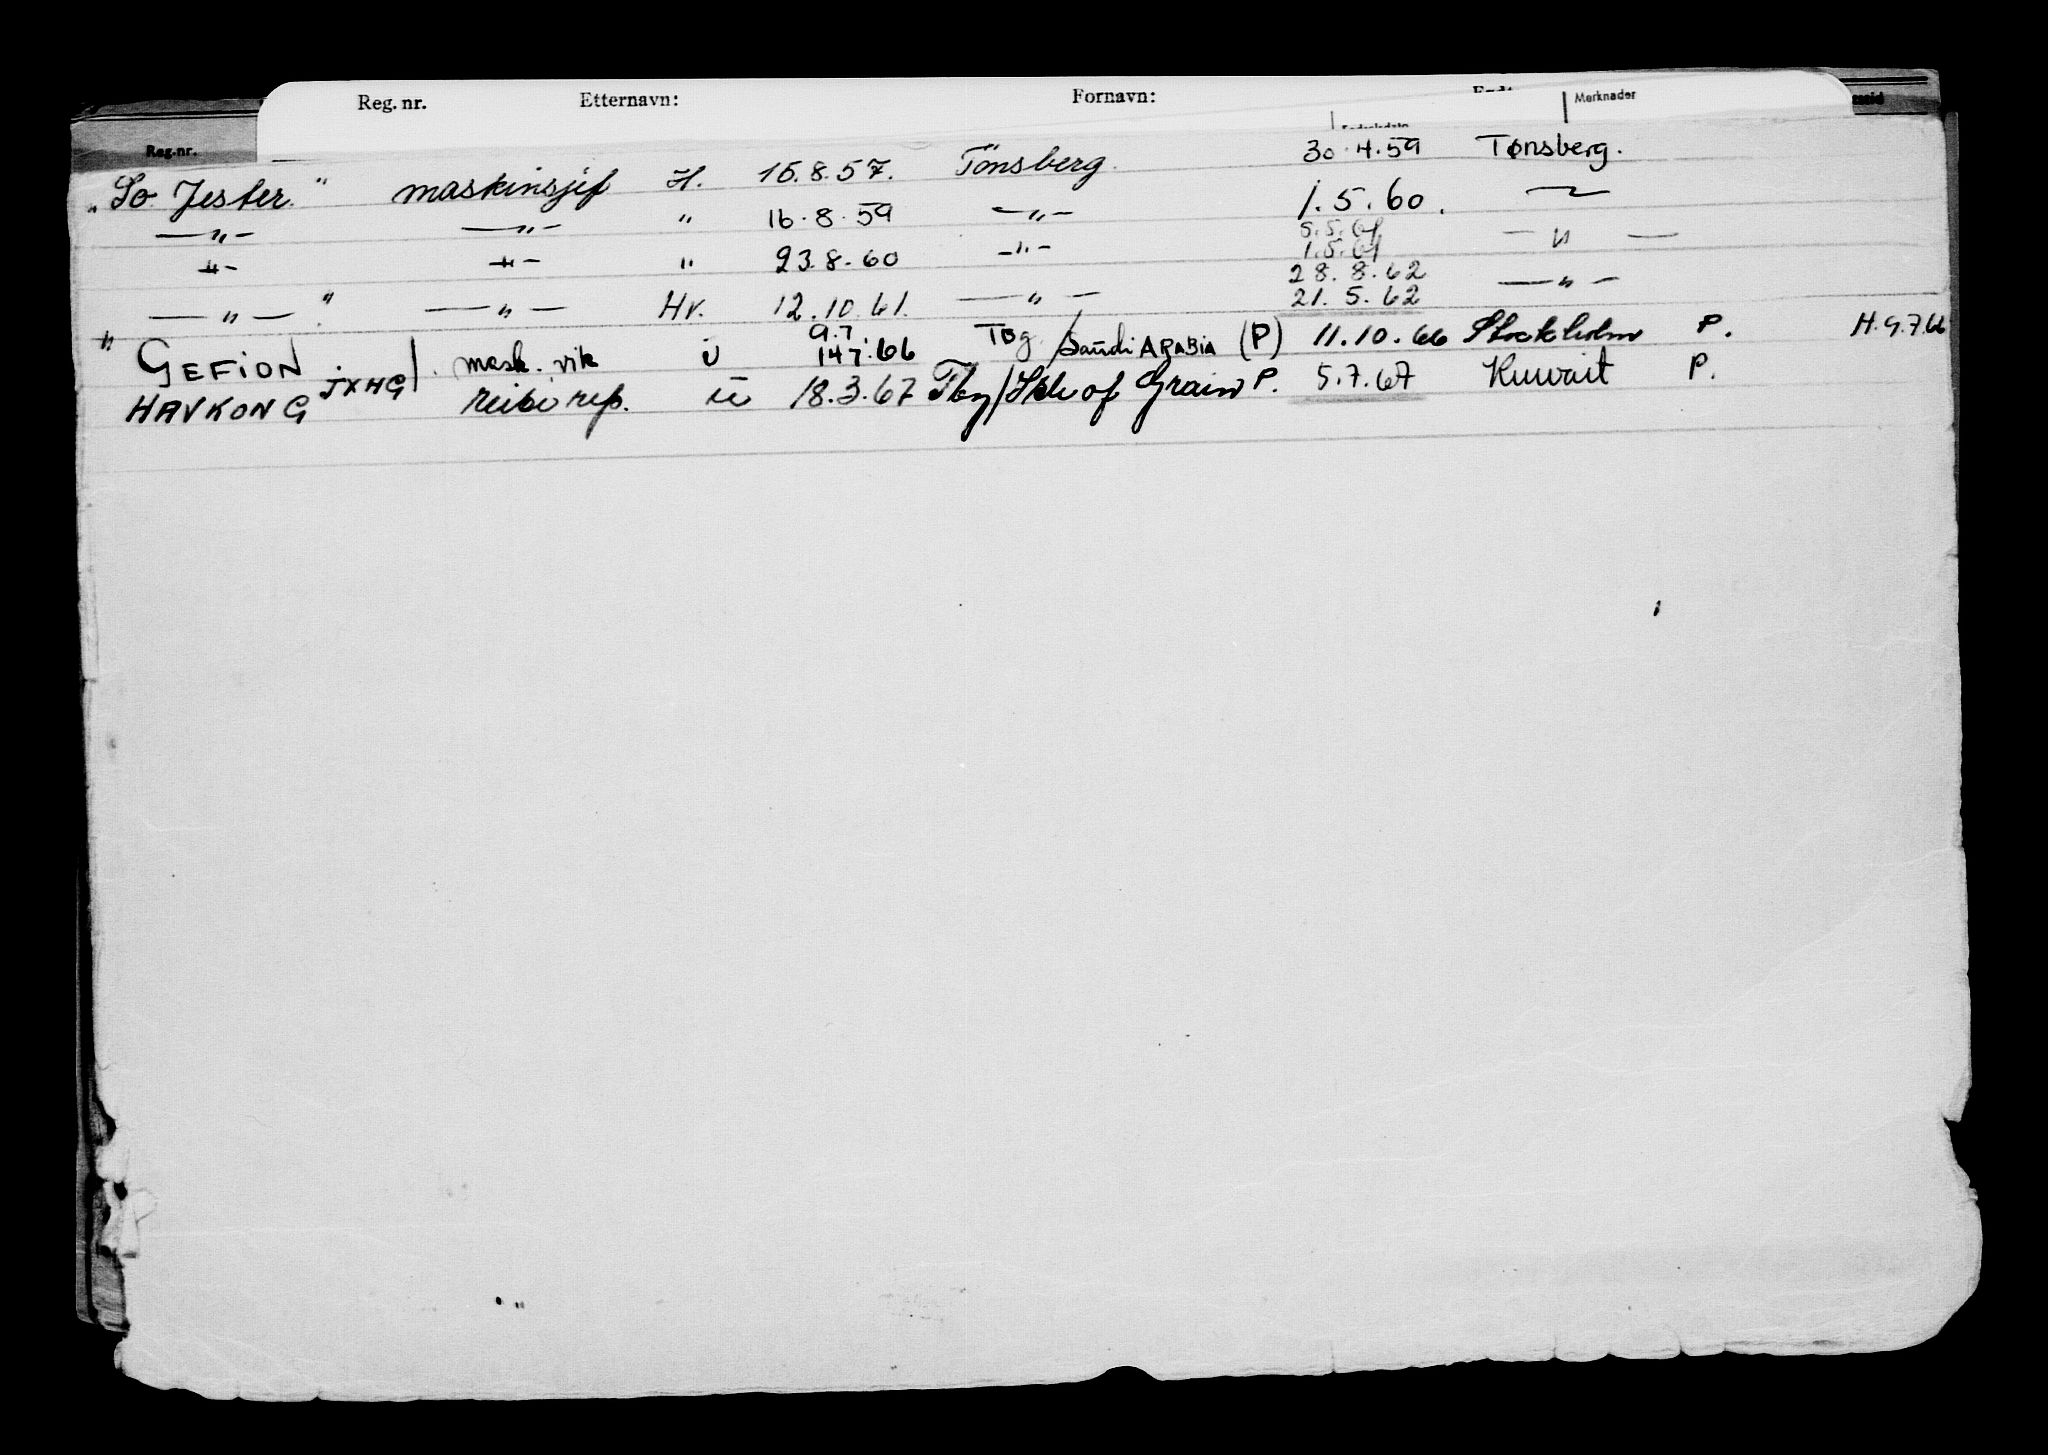 Reg. nr. Etternavn: Fornavn: Merknader
Reg.-nr.
"So Jester" maskinsjef H. 15.8.57. Tönsberg. 30.4.59 Tønsberg.
—"— —"— " 16.8.59 —"— 1.5.60.
—"— —"— " 23.8.60 —"— 1.5.61 —"—
28.8.62
—"—" —"— Hv. 12.10.61. —"— 21.5.62 —"—
9.7.
" GEFION. mask. vik U 147.66 TBg/Saudi ARABIA (P) 11.10.66 Stockholm P. H. 9.7.66
HAVKONG JXHG rep. 18.3.67 Tbg/Isle of Grain P. 5.7.67 Kuwait P.